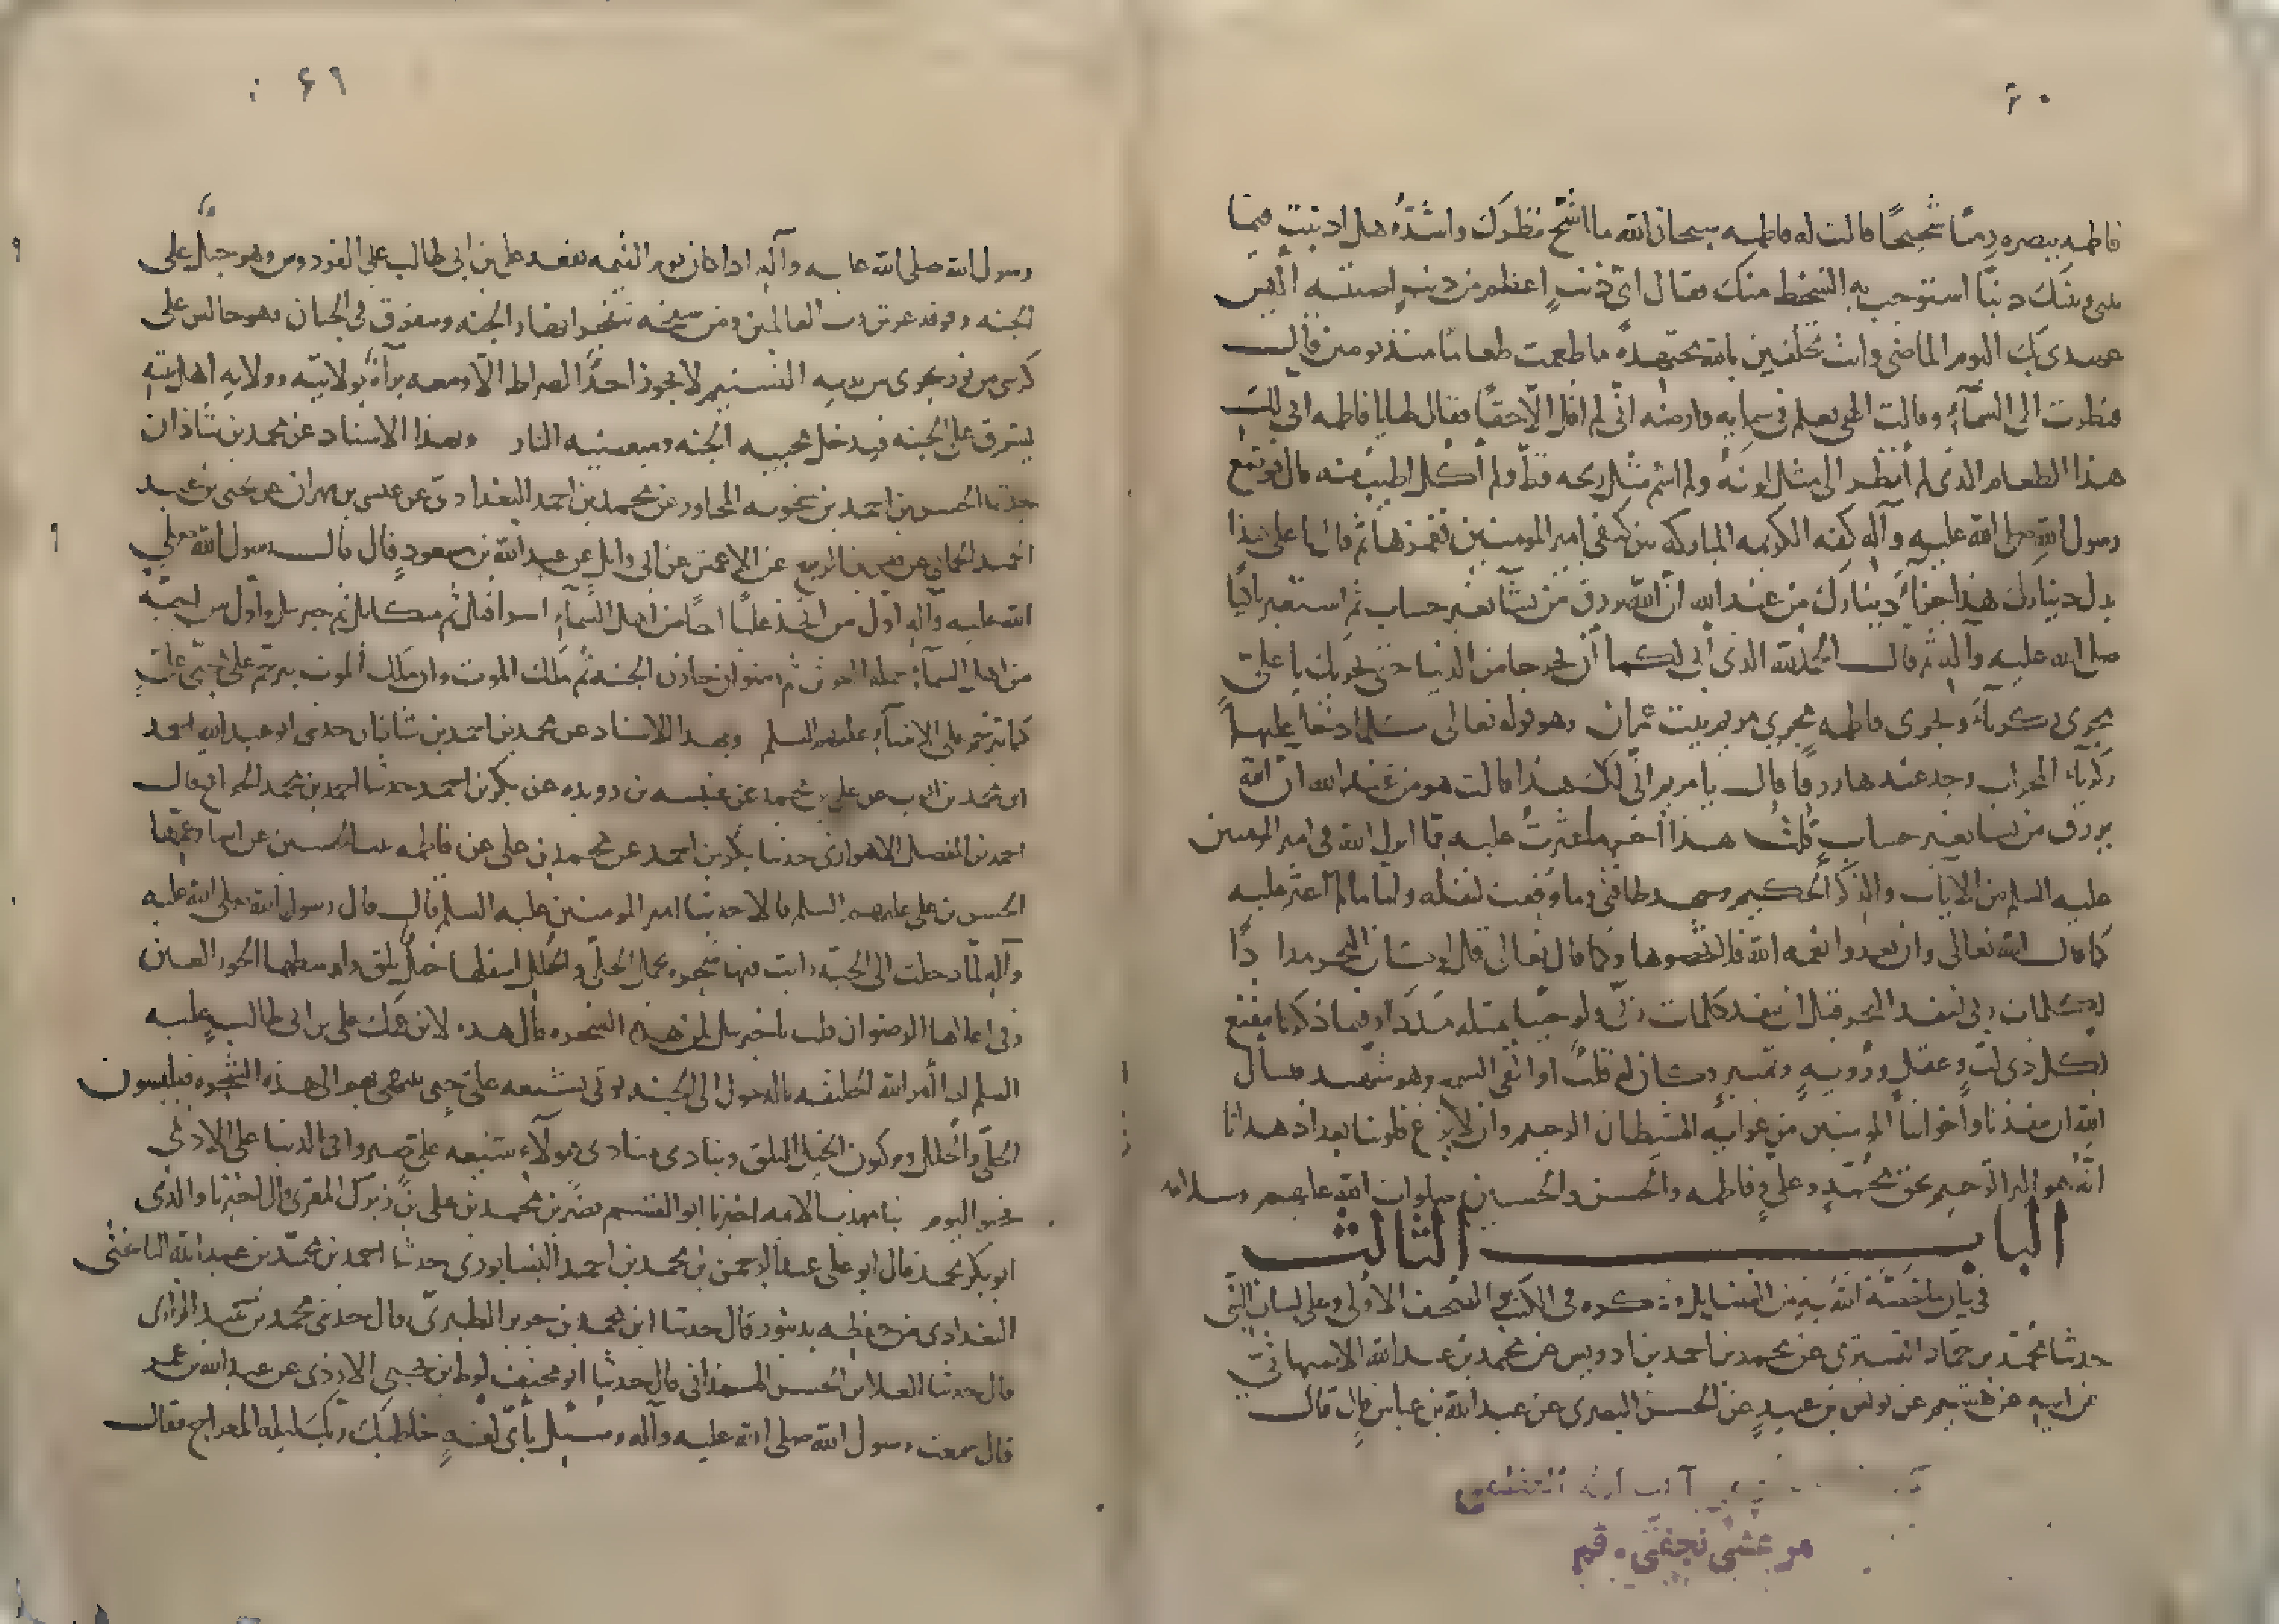 ۶۰
فاطمه ببصره رمیا شحیحا قالت له فاطمه سبحان الله ما اشح نظرك واشده هل اذنبت فیما
بینی وبینك ذنبا استوجب به السخط منك فقال ای ذنب اعظم من ذنب اصبتیه الیس
عهدی بك الیوم الماضی وانت تحلفین بالله مجتهده ما طعمت طعاما منذ یومین قال
فنظرت الی السمآء وقالت الهی یعلم فی سمایه وارضه انی لم اقل الا حقا فقال لها یا فاطمه انی لك
هذا الطعام الذی لم انظر الی مثل لونه ولم اشم مثل ریحه قط ولم اكل اطیب منه قال فوضع
رسول الله صلی الله علیه وآله كفه الكریمه المباركه بین كتفی امیر المومنین فغمزها ثم قال یا علی هذا
بدل دینارك هذا جزآء دینارك من عند الله ان الله یرزق من یشآء بغیر حساب ثم استعبر باكیا
صلی الله علیه وآله ثم قال الحمد لله الذی ابی لكما ان تخرجا من الدنیا حتی یجریك یا علی
مجری زكریآء ویجری فاطمه مجری مریم بنت عمران وهو قوله تعالی كلما دخل علیها
زكریآء المحراب وجد عندها رزقا قال یا مریم انی لك هذا قالت هو من عند الله ان الله
یرزق من یشا بغیر حساب قلت هذا اخر ما عثرت علیه مما انزل الله فی امیر المومنین
علیه السلم من الایات والذكر الحكیم وجهد طاقتی وما وفقت لنقله واما ما لم اعثر علیه
كما قال الله تعالی وان تعدوا نعمه الله لا تحصوها وكما قال تعالی قل لو كان البحر مدادا
لكلمات ربی لنفد البحر قبل ان تنفد كلمات ربی ولو جئنا بمثله مددا وفیما ذكرنا مقنع
لكل ذی لب وعقل ورویه وتمییز وكان له قلب او القی السمع وهو شهید فنسال
الله ان ینقذنا واخواننا المومنین من غوایه الشیطان الرجیم وان لا یزغ قلوبنا بعد اذ هدانا
انه هو البر الرحیم بحق محمد وعلی وفاطمه والحسن والحسین صلوات الله علیهم وسلامه
الباب الثالث
فی بیان ما خصه الله به من الفضایل وذكره فی الكتب والصحف الاولی وعلی لسان النبی
حدثنا محمد بن حماد التستری عن محمد بن احمد بن ادریس عن محمد بن عبد الله الاصبهانی
عن ابیه عن هشیم عن یونس بن عبید عن الحسن البصری عن عبد الله بن عباس قال قال
آیت الله العظمی
مرعشی نجفی ـ قم
۶۱
رسول الله صلی الله علیه وآله اذا كان یوم القیمه یقعد علی بن ابی طالب علی الفردوس وهو جبل علی
الجنه وفوقه عرش رب العالمین ومن سفحه تنفجر انهار الجنه وتتفرق فی الجنان وهو جالس علی
كرسی من نور یجری من یدیه التسنیم لا یجوز احد الصراط الا ومعه برآه بولایته وولایه اهل بیته
یشرف علی الجنه فیدخل محبیه الجنه ومبغضیه النار وبهذا الاسناد عن محمد بن شاذان
حدثنا الحسن بن احمد بن سخویه المجاور عن محمد بن احمد البغدادی عن عیسی بن مهران عن یحیی بن عبد
الحمید الحمانی عن قیس بن الربیع عن الاعمش عن ابی وایل عن عبد الله بن مسعود قال قال رسول الله صلی
الله علیه وآله اول من اتخذ علیا اخا من اهل السمآء اسرافیل ثم میكائیل ثم جبریل واول من احبه
من اهل السمآء حمله العرش ثم رضوان خازن الجنه ثم ملك الموت وان ملك الموت یترحم علی محبی علی
كما یترحم علی الانبیآء علیهم السلم وبهذا الاسناد عن محمد بن احمد بن شاذان حدثنی ابو عبد الله احمد
ابن محمد بن ایوب عن علی بن محمد عن عنبسه بن رویده عن بكر بن احمد حدثنا احمد بن محمد الجراح قال
احمد بن الفضل الاهوازی حدثنا بكر بن احمد عن محمد بن علی عن فاطمه بنت الحسین عن ابیها وعمها
الحسن بن علی علیهم السلم قالا حدثنا امیر المومنین علیه السلم قال قال رسول الله صلی الله علیه
وآله لما دخلت الی الجنه رایت فیها شجره تحمل الحلی والحلل اسفلها خیل بلق واوسطها الحور العین
وفی اعلاها الرضوان قلت یا جبریل لمن هذه الشجره قال هذه لابن عمك علی بن ابی طالب علیه
السلم اذا امر الله لخلیقه بالدخول الی الجنه یوتی بشیعه علی حتی ینتهی بهم الی هذه الشجره فیلبسون
الحلی والحلل ویركبون الخیل البلق وینادی منادی هولآء شیعه علی صبروا فی الدنیا علی الاذی
فحبوا الیوم نبا مهذب الائمه اخبرنا ابو القسم نصر بن محمد بن علی بن زیرك المقری قال اخبرنا والدی
ابو بكر محمد قال ابو علی عبد الرحمن بن محمد بن احمد النیسابوری حدثنا احمد بن محمد بن عبد الله النایحی
البغدادی من حفظه بدینور قال حدثنا ابن محمد بن جریر الطبری قال حدثنی محمد بن حمید الرازی
قال حدثنا العلا بن الحسین الهمدانی قال حدثنا ابو مخنف لوط ابن یحیی الازدی عن عبد الله بن عمر
قال سمعت رسول الله صلی الله علیه وآله وسئل بای لغه خاطبك ربك لیله المعراج فقال